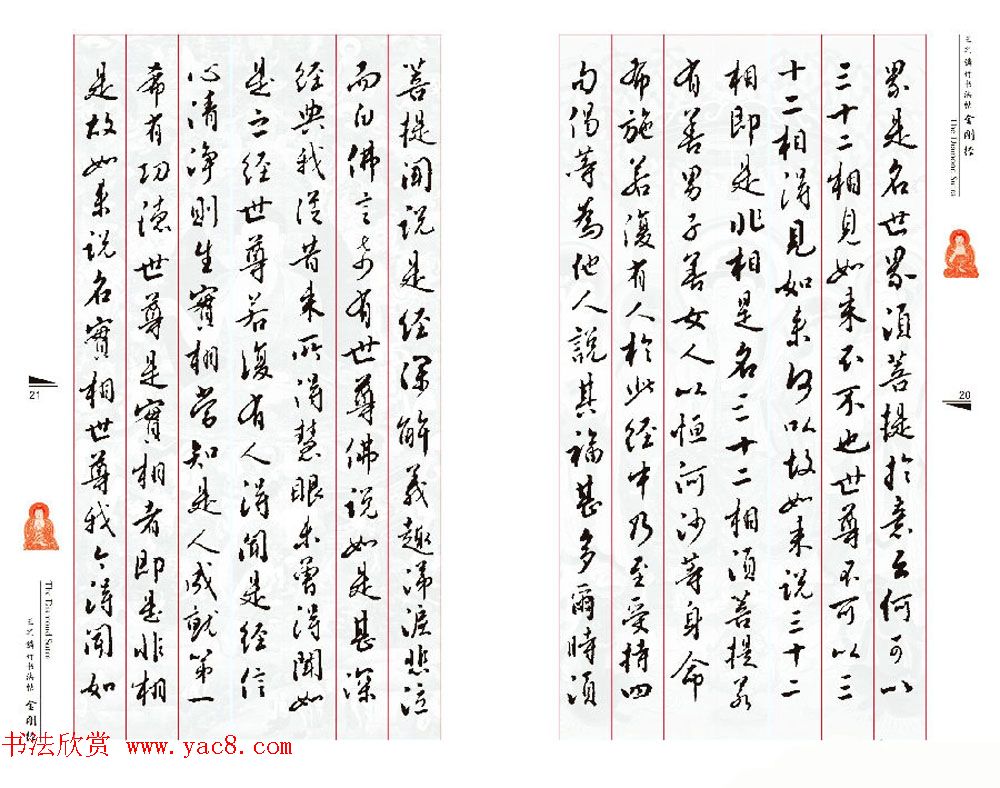 金刚经
The Diamond Sutra
20
界是名世界須菩提於意云何可以
三十二相見如来不不也世尊不可以三
十二相得見如来何以故如来说三十二
相即是非相是名三十二相須菩提若
有善男子善女人以恒河沙等身命
布施若復有人於此经中乃至受持四
句偈等為他人說其福甚多爾時須
菩提聞说是经深解義趣涕淚悲泣
而白佛言希有世尊佛说如是甚深
经典我從昔来所得慧眼未曾得聞如
是之经世尊若復有人得聞是经信
心清净則生實相當知是人成就第一
希有功德世尊是實相者即是非相
是故如来说名實相世尊我今得聞如
21
The Diamond Sutra
金刚经
书法欣赏 www.yac8.com